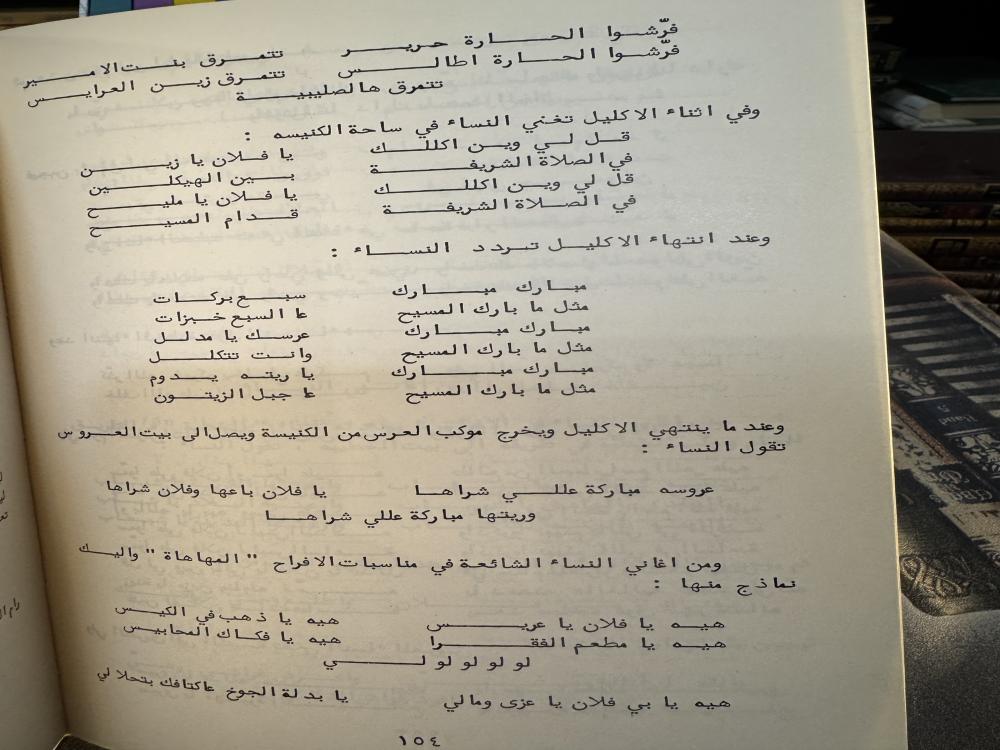 فرّشوا الحارة حرير تتمرق بنت الامير
فرّشوا الحارة اطالس تتمرق زين العرايس
تتمرق هالصليبية
وفي اثناء الاكليل تغني النساء في ساحة الكنيسه :
قل لي وين اكللك يا فلان يا زين
في الصلاة الشريفة بين الهيكلين
قل لي وين اكللك يا فلان يا مليح
في الصلاة الشريفة قدام المسيح
وعند انتهاء الاكليل تردد النساء :
مبارك مبارك سبع بركات
مثل ما بارك المسيح عا السبع خبزات
مبارك مبارك عرسك يا مدلل
مثل ما بارك المسيح وانت تتكلل
مبارك مبارك يا ريته يدوم
مثل ما بارك المسيح عا جبل الزيتون
وعند ما ينتهي الاكليل ويخرج موكب العرس من الكنيسة ويصل الى بيت العروس
تقول النساء :
عروسه مباركة عللي شراها يا فلان باعها وفلان شراها
وريتها مباركة عللي شراها
ومن اغاني النساء الشائعة في مناسبات الافراح " المهاهاة " واليك
نماذج منها :
هيه يا فلان يا عريس هيه يا ذهب في الكيس
هيه يا مطعم الفقرا هيه يا فكاك المحابيس
لو لو لو لو لي
هيه يا بي فلان يا عزى ومالي يا بدلة الجوخ عاكتافك بتحلالي
١٥٤